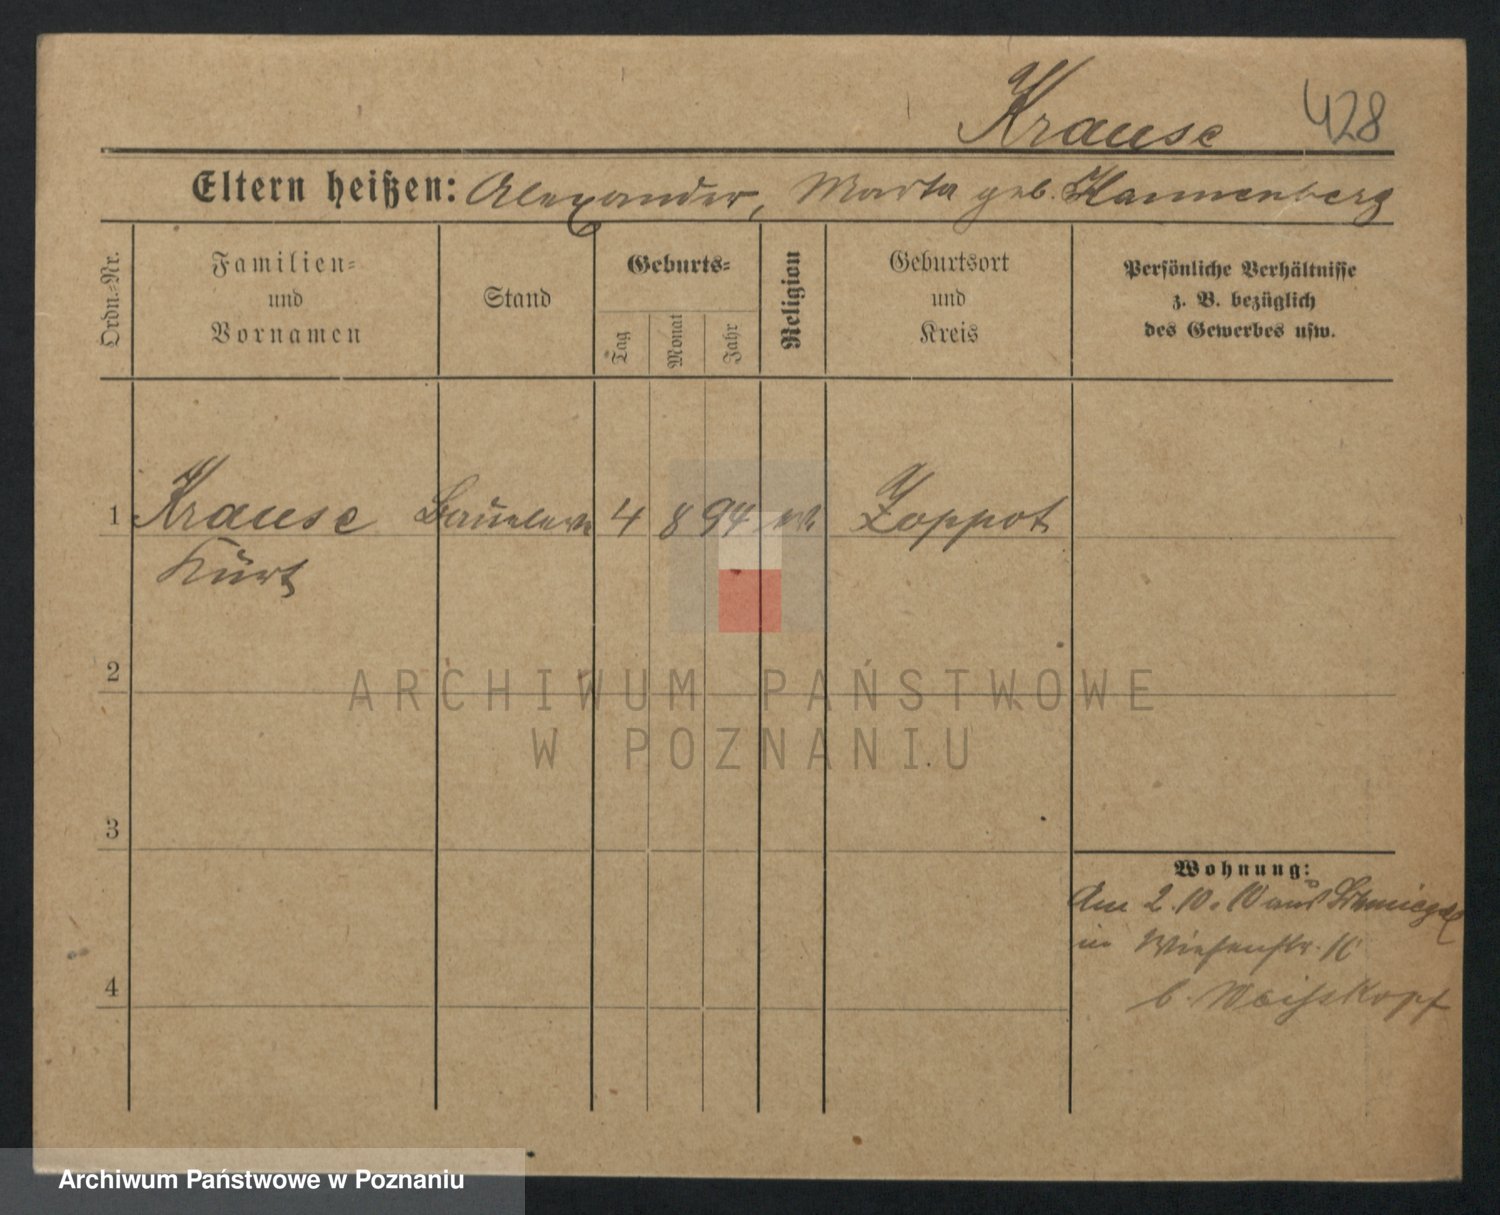 Krause 428
Eltern heißen: Alexander, Marta geb. Kannenberg
Ordn.-Nr.
Familien-
und
Vornamen
Stand
Geburts-
Tag
Monat
Jahr
Religion
Geburtsort
und
Kreis
Persönliche Verhältnisse
z. B. bezüglich
des Gewerbes usw.
1 Krause 4 8 94 Zoppot
Kurt
2
3
4
Wohnung:
Am 2. 10. 10 aus Schmiegel
in Wiesenstr.
b. Weisskopf
ARCHIWUM PAŃSTWOWE
W POZNANIU
Archiwum Państwowe w Poznaniu